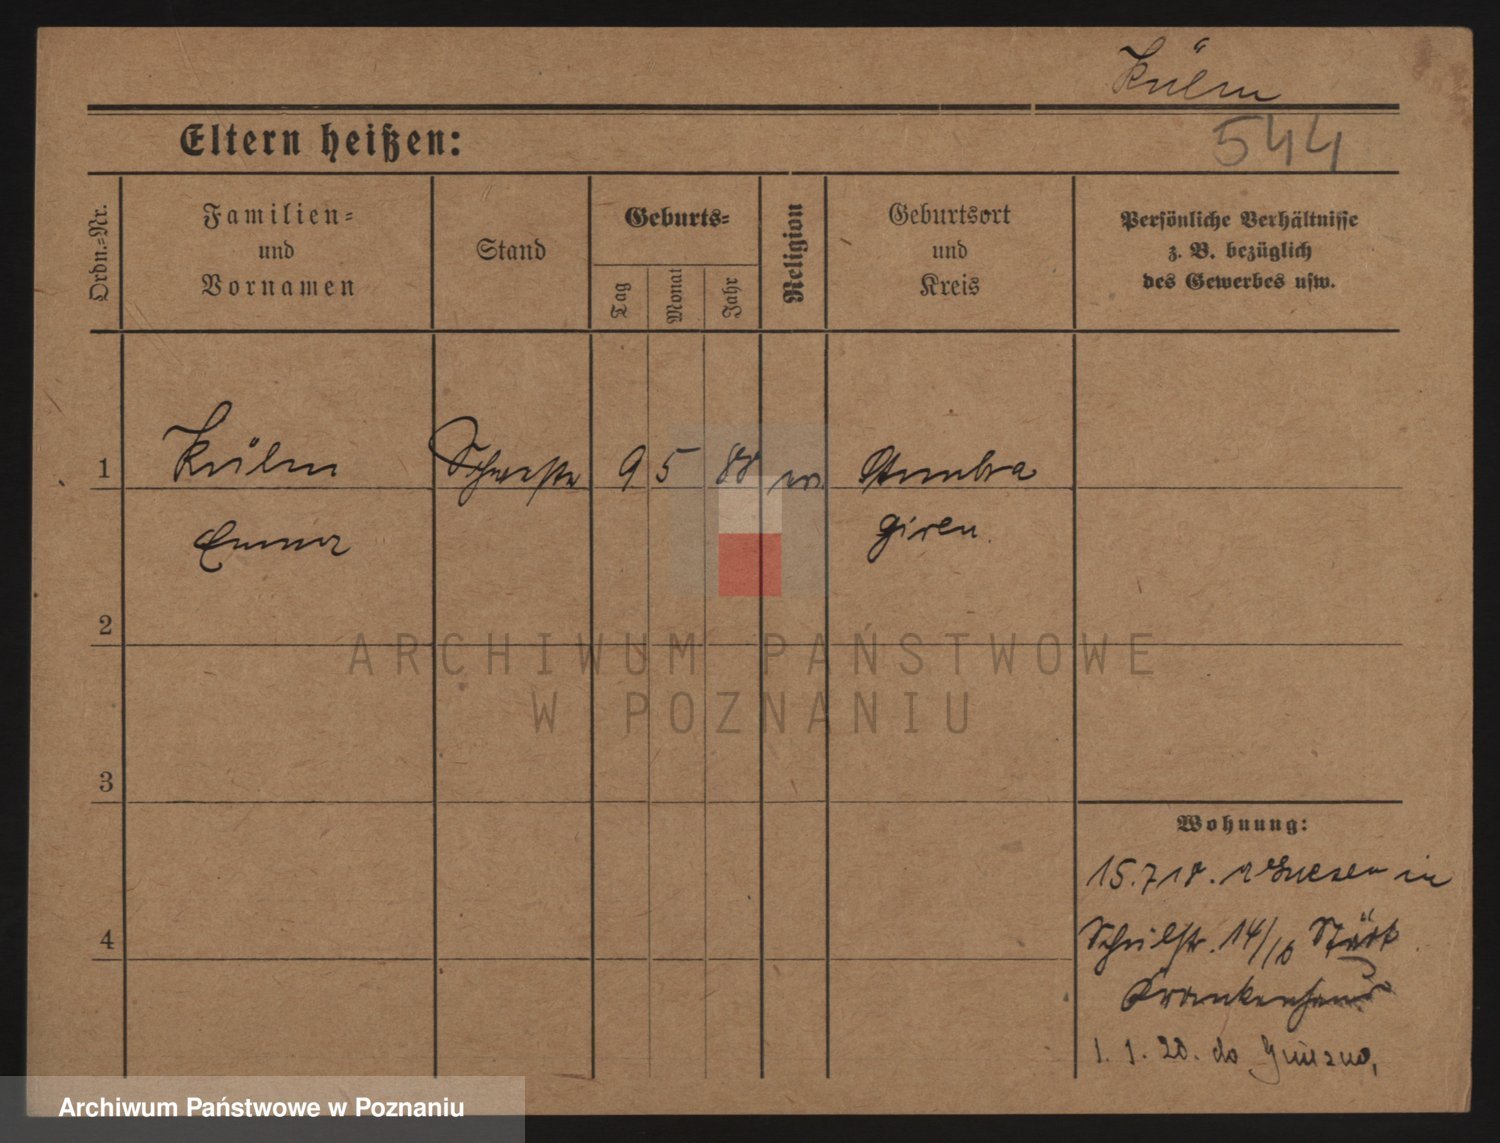 Külm
Eltern heißen:
544
Ordn.=Nr.
Familien=
und
Vornamen
Stand
Geburts=
Tag
Monat
Jahr
Religion
Geburtsort
und
Kreis
Persönliche Verhältnisse
z. B. bezüglich
des Gewerbes usw.
1
Külm
Schwester
9
5
88
Emma
2
ARCHIWUM PAŃSTWOWE
W POZNANIU
3
Wohnung:
15.7.18. Gnesen in
4
Schulstr. 14/16 Städt
Krankenhaus
1. 1. 20. do Gniezno,
Archiwum Państwowe w Poznaniu